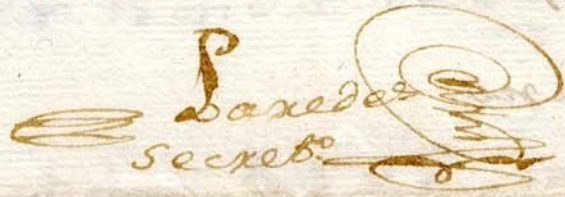 Paredes
secret.º